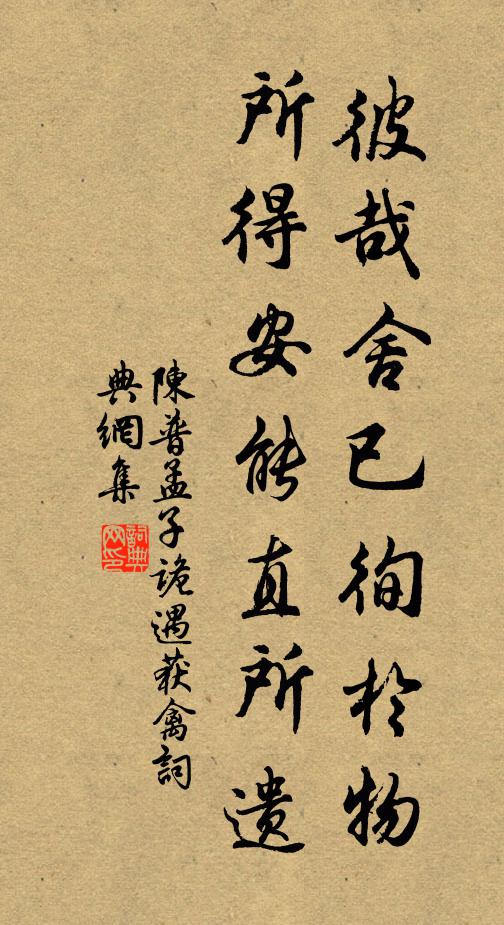 彼哉舍已徇於物
所得安能直所遗
陳普孟子詭遇获禽詞
典網集
詞典
网印